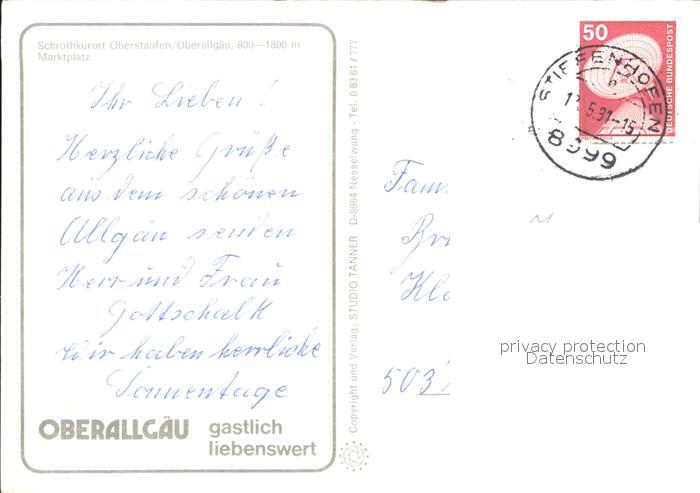 Schrothkurort Oberstaufen/Oberallgäu, 800—1800 m
Marktplatz
Ihr Lieben!
Herzliche Grüße
aus dem schönen
Allgäu senden
Herr und Frau
Gottschalk
Wir haben herrliche
Sonnentage
OBERALLGÄU gastlich
liebenswert
Copyright und Verlag: STUDIO TANNER D-8964 Nesselwang · Tel. 0 83 61 / 777
50
DEUTSCHE BUNDESPOST
STIEFENHOFEN
5.91-15
8999
Fam.
privacy protection
Datenschutz
503